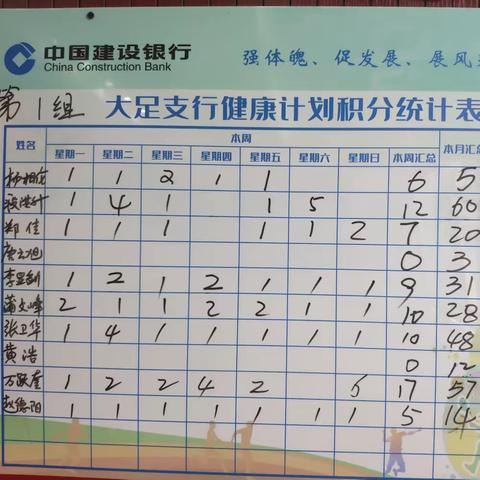 中国建设银行
China Construction Bank
强体魄、促发展、展风
第1组 大足支行健康计划积分统计表
姓名 本周 本月汇总
星期一 星期二 星期三 星期四 星期五 星期六 星期日 本周汇总
1 1 2 1 1 6 5
1 4 1 1 5 12 60
郑佳 1 1 1 1 1 2 7 20
0 3
1 2 1 2 1 1 1 9 31
蒲文峰 2 1 1 2 2 1 1 10 28
张卫华 1 4 1 1 1 1 1 10 48
黄浩 0 12
万跃奎 1 2 2 4 2 6 17 57
赵德阳 1 1 1 1 1 1 1 5 14